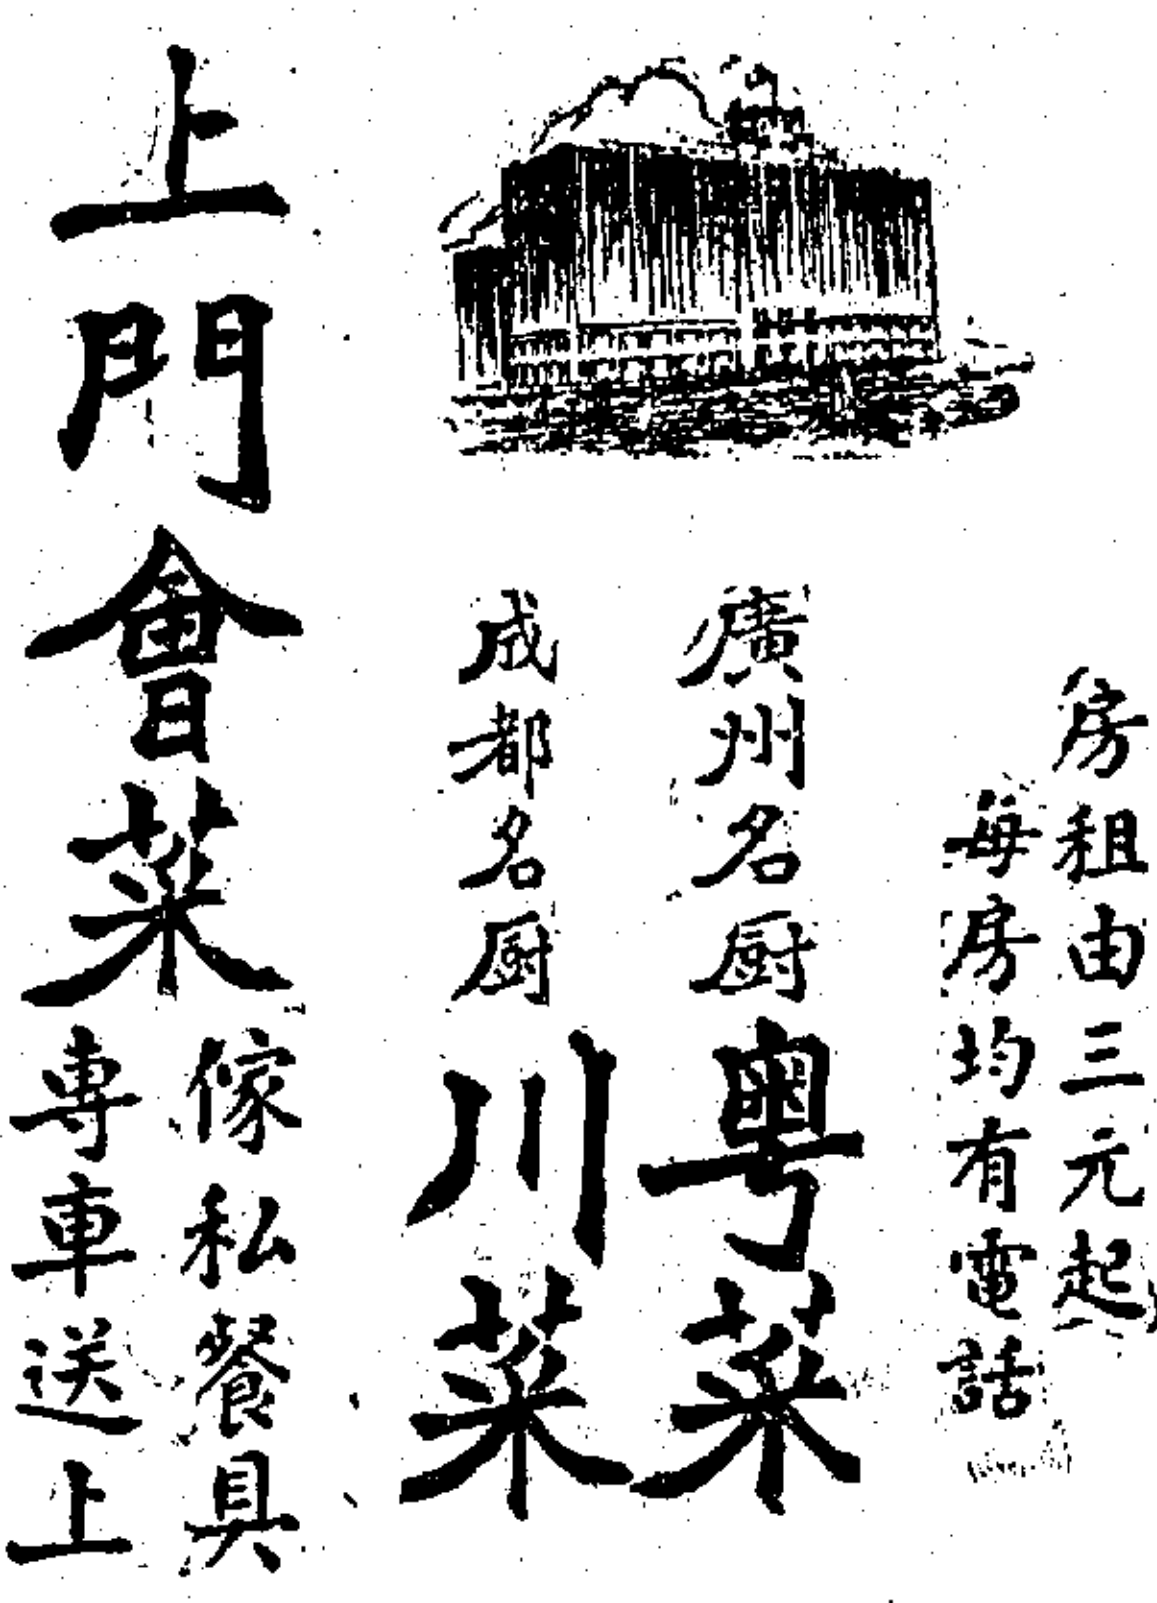 房租由三元起
每房均有電話
廣州名厨
粤菜
成都名厨
川菜
上門會菜
傢私餐具
專車送上